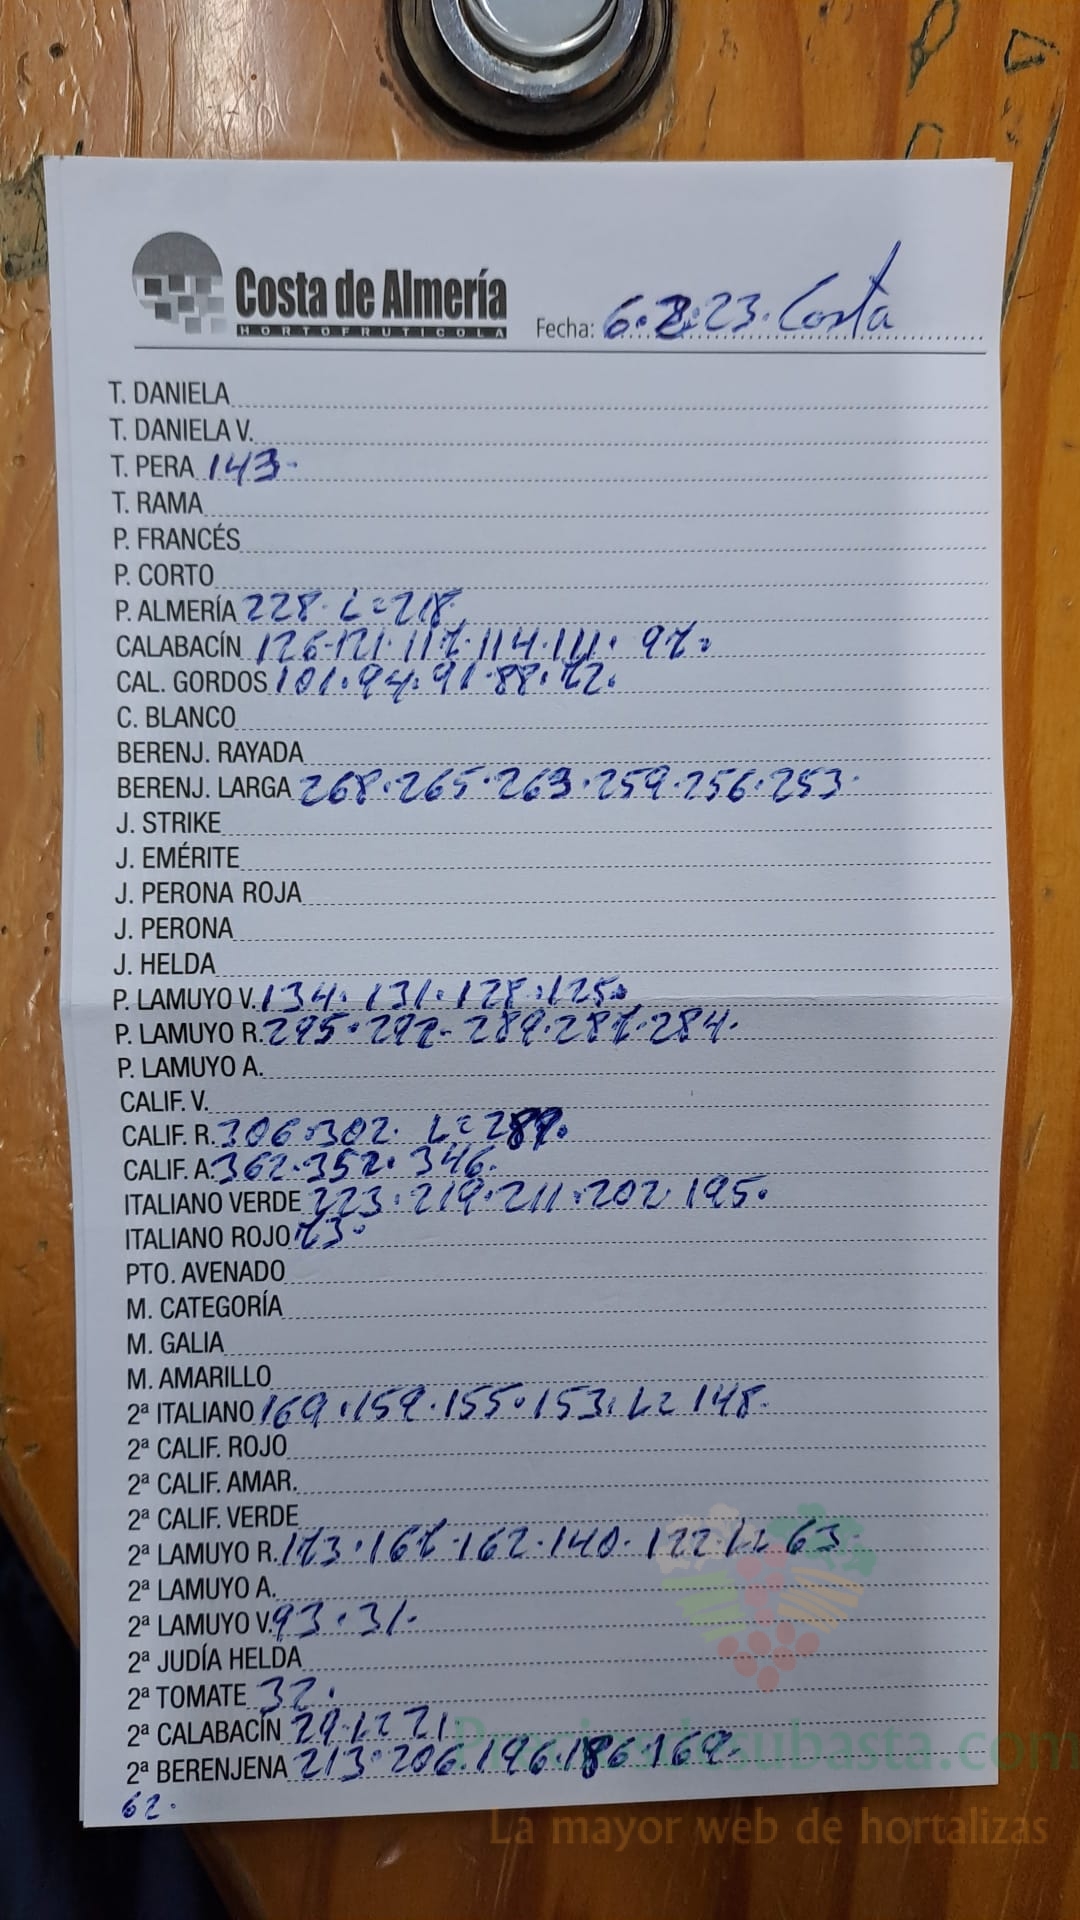 Costa de Almería
HORTOFRUTICOLA
Fecha: 6.2.23. Costa
T. DANIELA
T. DANIELA V.
T. PERA 143.
T. RAMA
P. FRANCÉS
P. CORTO
P. ALMERÍA 228. L=218.
CALABACÍN 126.121.117.114.111. 97.
CAL. GORDOS 101.94.91.88.72.
C. BLANCO
BERENJ. RAYADA
BERENJ. LARGA 268.265.263.259.256.253.
J. STRIKE
J. EMÉRITE
J. PERONA ROJA
J. PERONA
J. HELDA
P. LAMUYO V. 134. 131. 128.125.
P. LAMUYO R. 295.292. 289.287.284.
P. LAMUYO A.
CALIF. V.
CALIF. R. 306.302. L=289.
CALIF. A. 362.352. 346.
ITALIANO VERDE 223.219.211.202.195.
ITALIANO ROJO 73.
PTO. AVENADO
M. CATEGORÍA
M. GALIA
M. AMARILLO
2ª ITALIANO 169.159.155.153. L= 148.
2ª CALIF. ROJO
2ª CALIF. AMAR.
2ª CALIF. VERDE
2ª LAMUYO R. 173.167.162.140. 122. L= 63.
2ª LAMUYO A.
2ª LAMUYO V. 93.31.
2ª JUDÍA HELDA
2ª TOMATE 32.
2ª CALABACÍN 29. L= 21
2ª BERENJENA 213.206.196.186.169.
62.
Preciosdesubasta.com
La mayor web de hortalizas